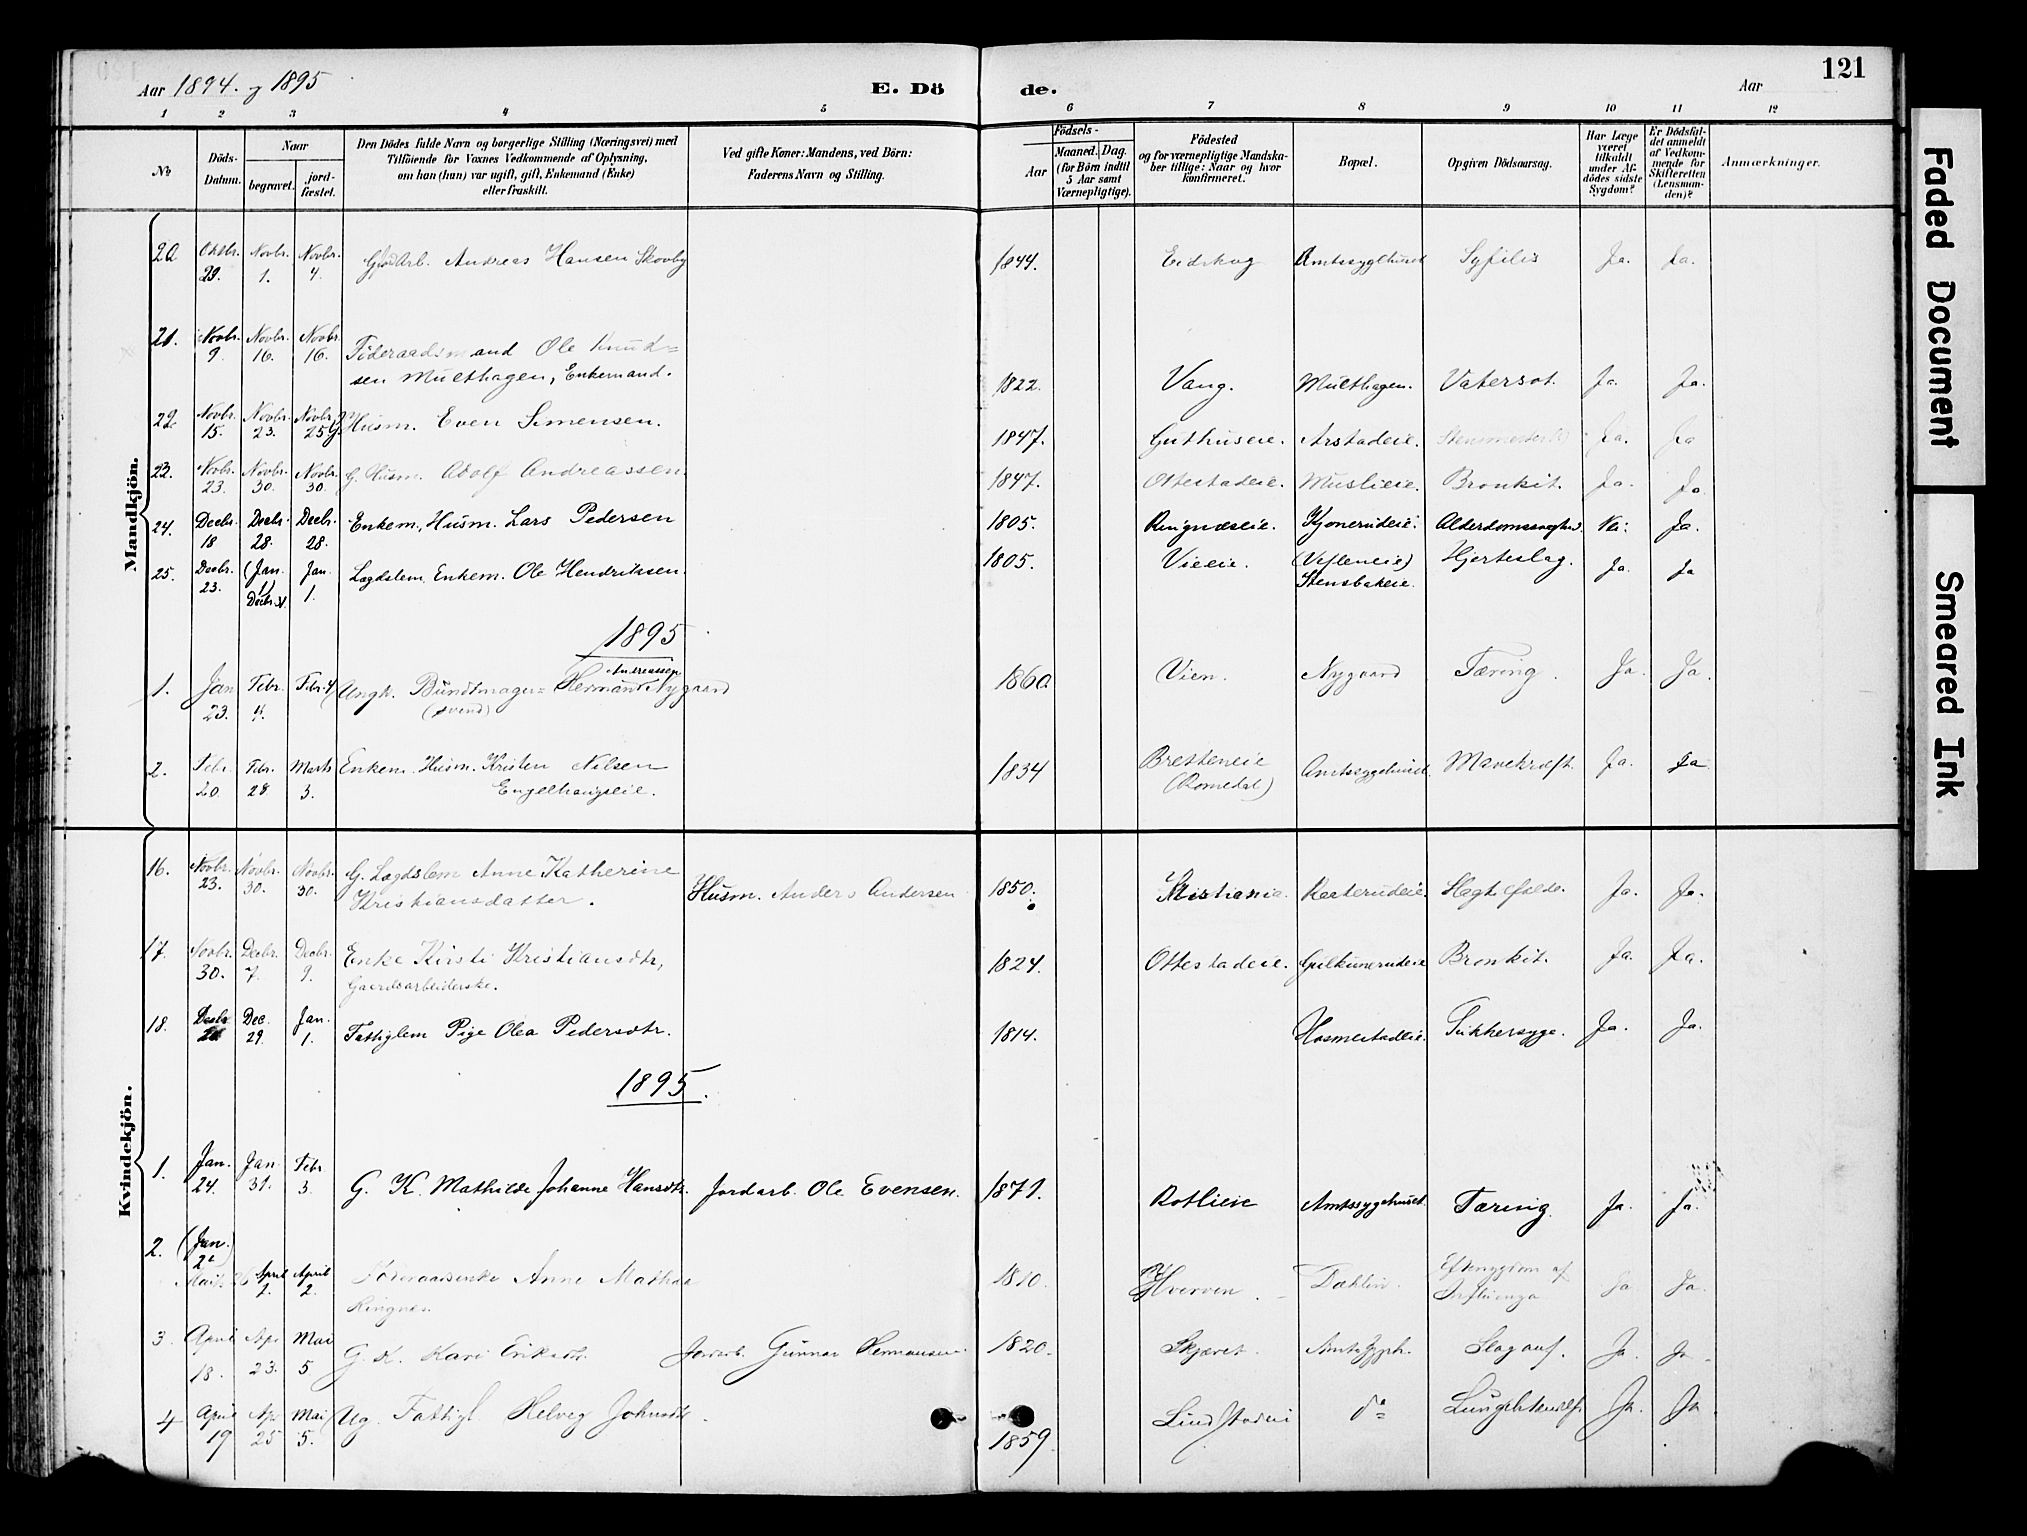 Aar 1894. og 1895
E. Döde.
Aar
121
1 2 3 4 5 6 7 8 9 10 11 12
No
Döds-Datum.
Naar
begravet.
jord-fæstet.
Den Dödes fulde Navn og borgerlige Stilling (Næringsvei) med
Tilföiende for Voxnes Vedkommende af Oplysning,
om han (hun) var ugift, gift, Enkemand (Enke)
eller fraskilt.
Ved gifte Koner: Mandens, ved Börn:
Faderens Navn og Stilling.
Födsels-
Aar
Maaned. Dag.
(for Börn indtil
5 Aar samt
Værnepligtige).
Födested
og for værnepligtige Mandska-
ber tillige: Naar og hvor
konfirmeret.
Bopæl.
Opgiven Dödsaarsag.
Har Læge
været
tilkaldt
under Af-
dödes sidste
Sygdom?
Er Dödsfal-
det anmeldt
af Vedkom-
mende for
Skifteretten
(Lensman-
den)?
Anmærkninger.
Mandkjön.
20 Oktbr. 29. Novbr. 1. Novbr. 4. Andreas Hansen Skovby 1844. Eidskog Amtssygehuset Syfilis Ja. Ja.
21. Novbr. 9. Novbr. 16. Novbr. 16. Föderaadsmand Ole Knud=
sen Multhagen, Enkemand. 1822. Vang. Multhagen. Vatersot. Ja. Ja.
22 Novbr. 15. Novbr. 23. Novbr. 25 Husm. Even Simensen. 1847. Guthuseie. Arstadeie. Ja. Ja
23. Novbr. 23. Novbr. 30. Novbr. 30. G. Husm. Adolf Andreassen. 1847. Ottestadeie. Muslieie. Bronkit. Ja. Ja.
24. Decbr. 18 Decbr. 28. Decbr. 28. Enkem., Husm. Lars Pedersen 1805. Ringnæseie. Kjonerudeie. Nei. Ja.
25. Decbr. 23. (Jan. 1) Decbr. 31 Jan. 1. Lægdslem, Enkem. Ole Hendriksen. 1805. Vieeie. Stensbakeie. Hjerteslag. Ja. Ja
1895
1. Jan 23. Febr. 4. Febr. 4 Ungk. Bundtmager= Herman Andreassen Nygaard
(svend) 1860. Vien. Nygaard Tæring. Ja. Ja.
2. Febr. 20. Febr. 28. Marts 3. Enkem. Husm. Kristen Nilsen
Engelhaugseie. 1834 Bretteneie
(Romedal) Amtssygehuset. Mavekræft. Ja. Ja
Kvindekjön.
16. Novbr. 23. Novbr. 30. Novbr. 30. G. Lægdslem Anne Katherine
Kristiansdatter. Husm. Anders Andersen 1850. Kristiania. Ja. Ja.
17. Novbr. 30. Decbr. 7. Decbr. 9. Enke Kirsti Kristiansdtr,
Gaardsarbeiderske. 1824. Ottestadeie. Bronkit. Ja. Ja.
18. Decbr. Dec. 29. Jan. 1. Fattiglem Pige Olea Pedersdtr. 1814. Hosmestadeie. Sukkersyge. Ja. Ja.
1895.
1. Jan. 24. Jan. 31. Febr 3. G. K. Mathilde Johanne Hansdtr. Jordarb. Ole Evensen. 1871. Rotlieie Amtssygehuset. Tæring. Ja. Ja.
2. (Jan.) Marts 26 April 2. April 2. Föderaadsenke Anne Mathea
Ringnes. 1810. Hverven Dæhlin. Eftersygdom af
Influenza Ja Ja.
3. April 18. Apr. 23. Mai 5 G. K. Kari Eriksdtr. Jordarb. Gunnar Hermansen. 1820. Skjæret. Slaganf. Ja. Ja
4 April 19 Apr 25 Mai 5. Ug. Fattigl. Helveg Johnsdtr. 1859 do Ja. Ja
Faded Document
Smeared Ink